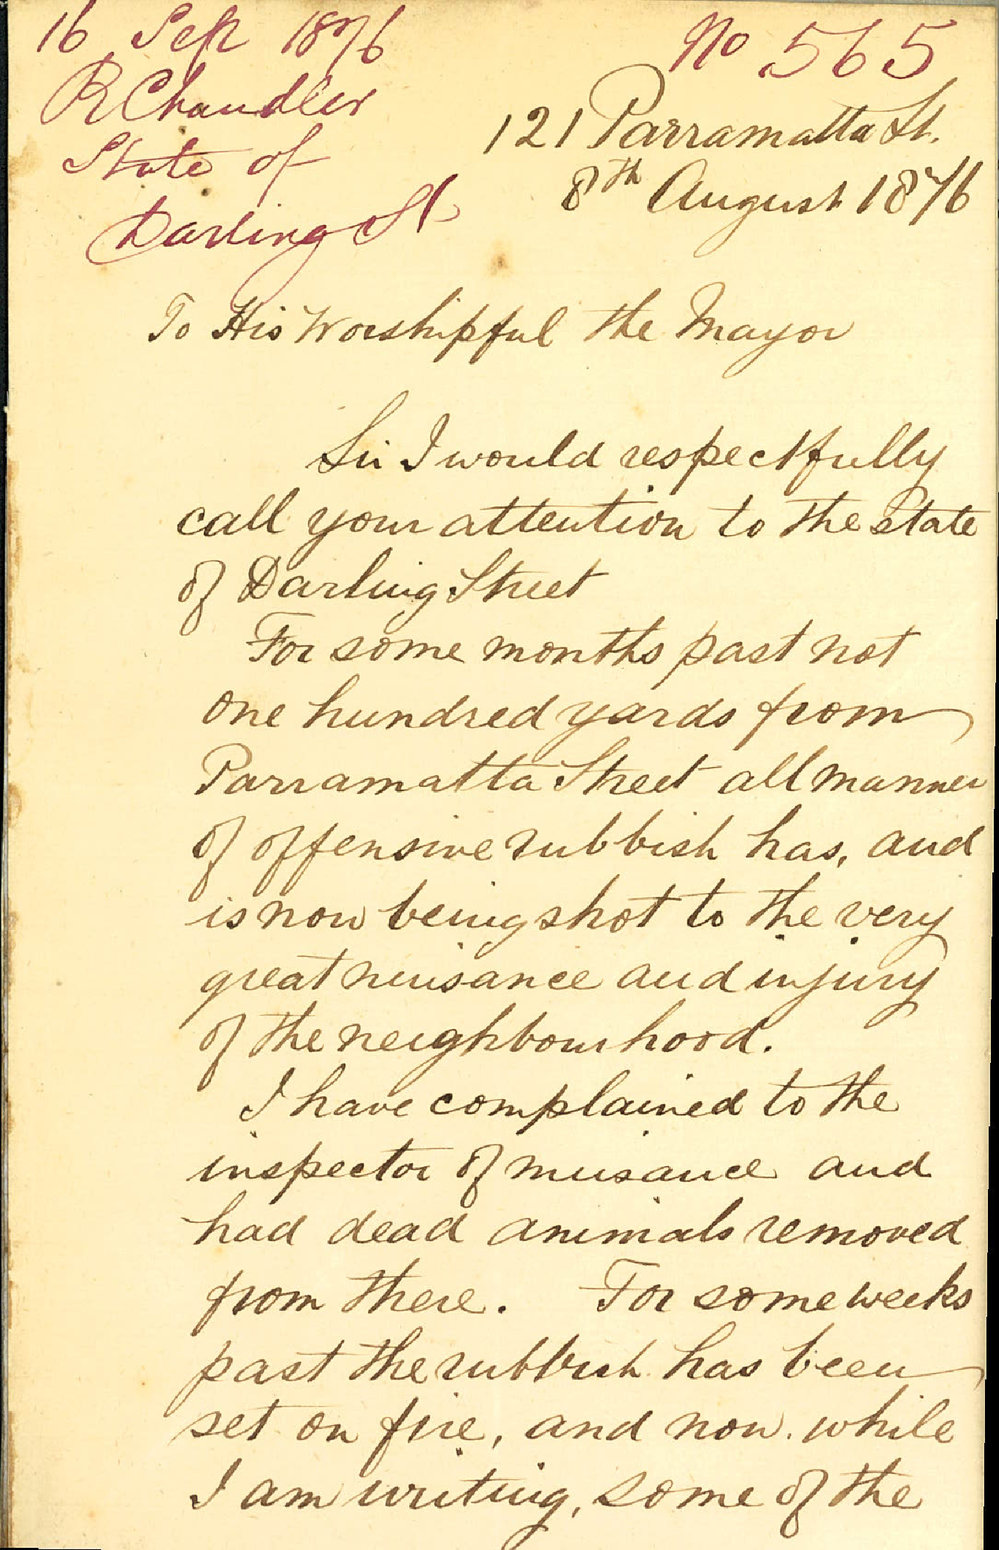 16 Sep 1876
No 565
R Chandler
State of
Darling St
121 Parramatta St.
8th August 1876
To His Worshipful the Mayor
Sir I would respectfully
call your attention to the state
of Darling Street
For some months past not
one hundred yards from
Parramatta Street all manner
of offensive rubbish has, and
is now being shot to the very
great nuisance and injury
of the neighbourhood.
I have complained to the
inspector of nuisance and
had dead animals removed
from there. For some weeks
past the rubbish has been
set on fire, and now while
I am writing, some of the